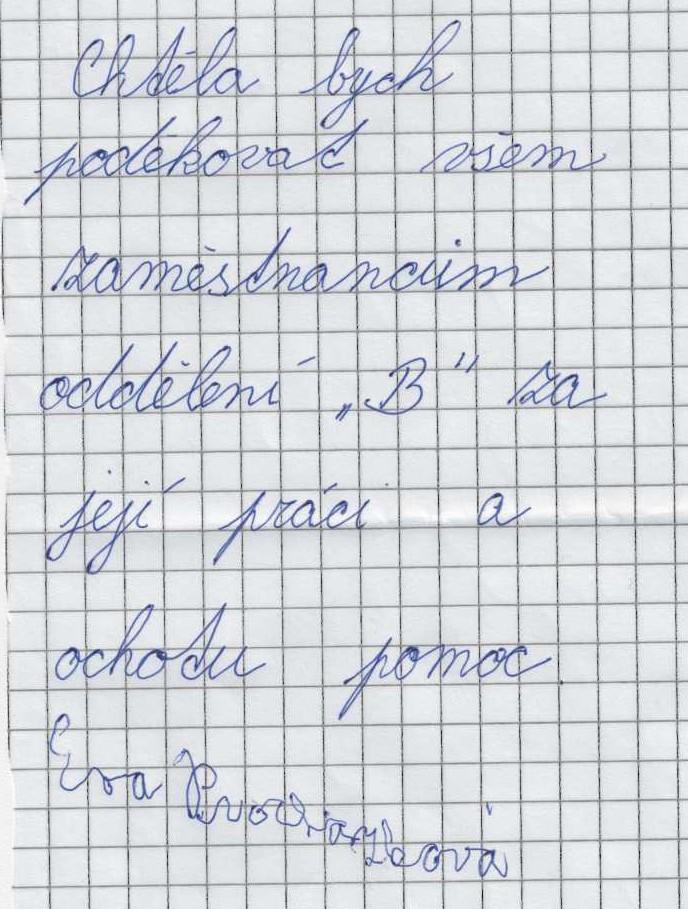 Chtěla bych
poděkovat všem
zaměstnancům
oddělení „B" za
její práci a
ochotu pomoc.
Eva